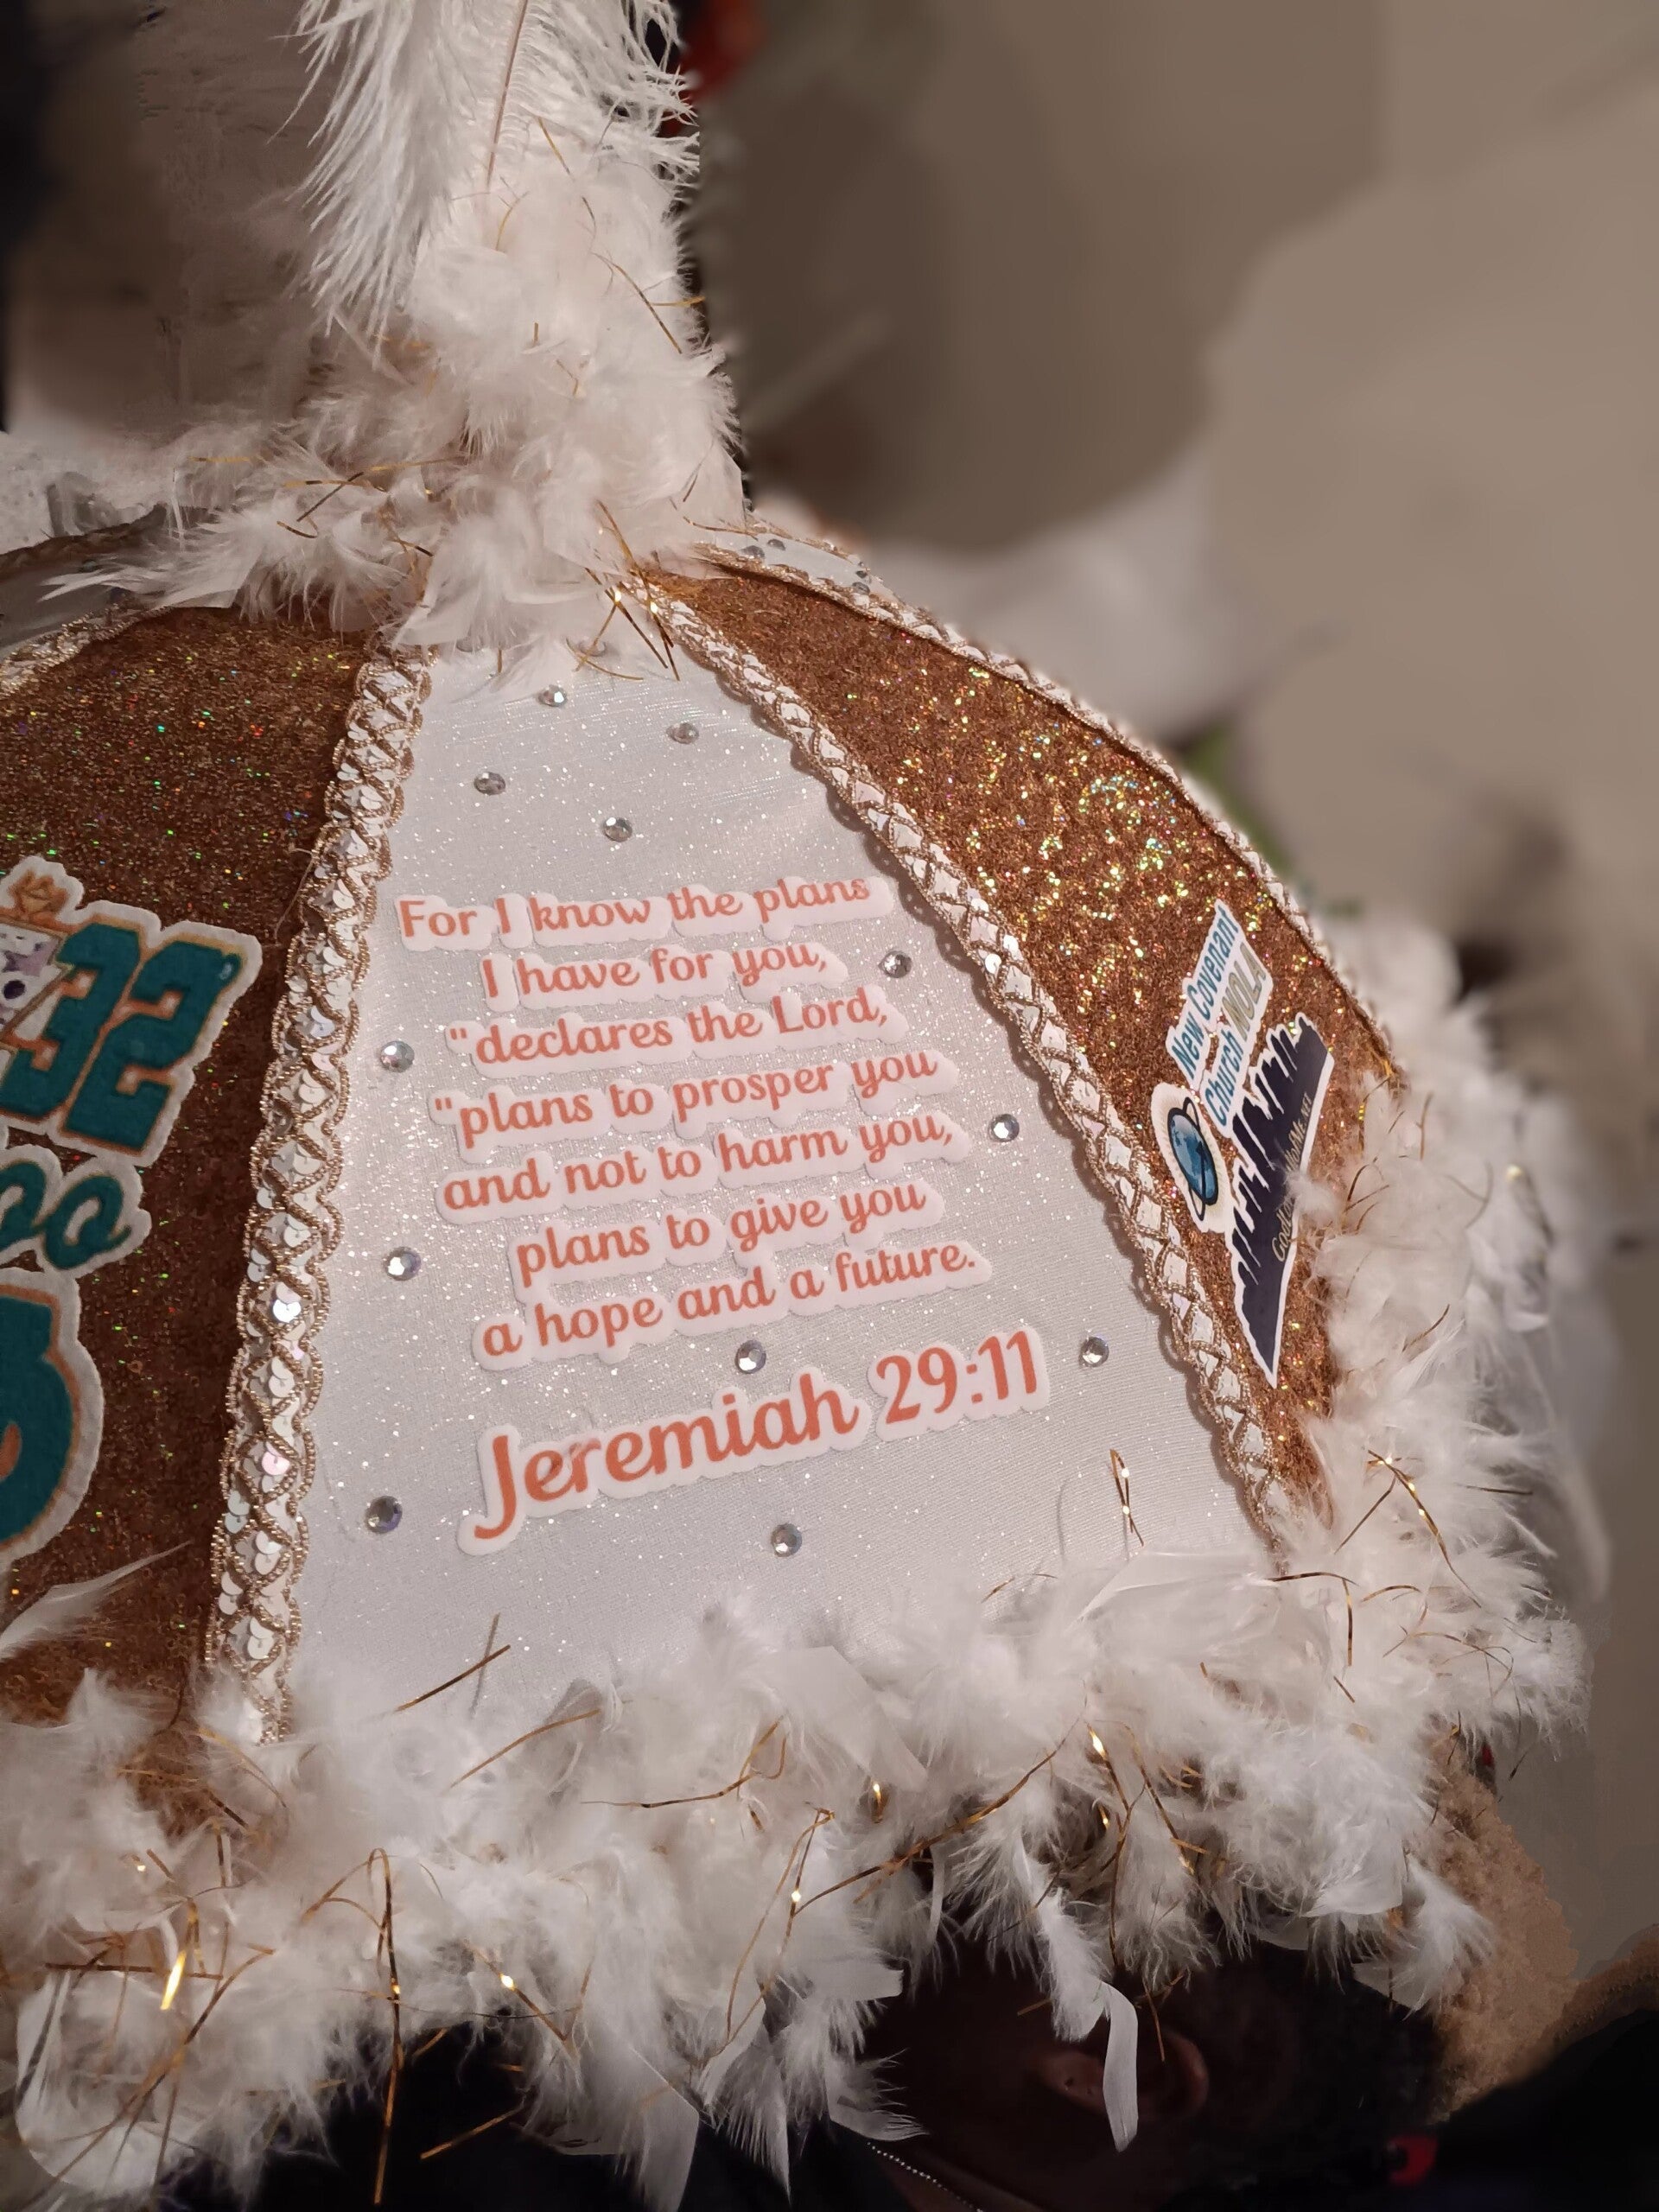 32
oo
For I know the plans
I have for you,
"declares the Lord,
"plans to prosper you
and not to harm you,
plans to give you
a hope and a future.
Jeremiah 29:11
New Covenant
Church NOLA